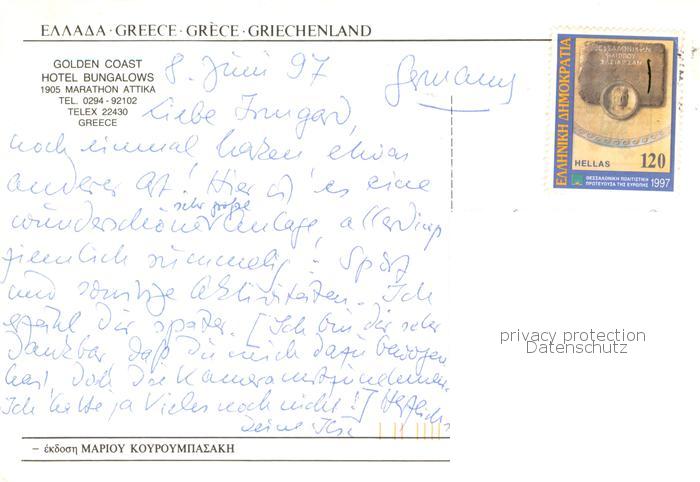 ΕΛΛΑΔΑ · GREECE · GRÈCE · GRIECHENLAND
GOLDEN COAST
HOTEL BUNGALOWS
1905 MARATHON ATTIKA
TEL. 0294 - 92102
TELEX 22430
GREECE
8. Juni 97
Germany
Liebe Irmgard,
noch einmal etwas
anderer Art! Hier ist es eine
sehr große
wunderschöne Anlage, allerdings
ziemlich rummelig - Sport
und sonstige Aktivitäten. Ich
erzähl Dir später. [Ich bin Dir sehr
dankbar, daß Du mich dazu bewogen
hast, doch die Kamera mitzunehmen.
Ich hätte ja Vieles noch nicht!] Herzlichst
Deine Ilse
– έκδοση ΜΑΡΙΟΥ ΚΟΥΡΟΥΜΠΑΣΑΚΗ
ΕΛΛΗΝΙΚΗ ΔΗΜΟΚΡΑΤΙΑ
HELLAS 120
ΘΕΣΣΑΛΟΝΙΚΗ ΠΟΛΙΤΙΣΤΙΚΗ
ΠΡΩΤΕΥΟΥΣΑ ΤΗΣ ΕΥΡΩΠΗΣ 1997
privacy protection
Datenschutz